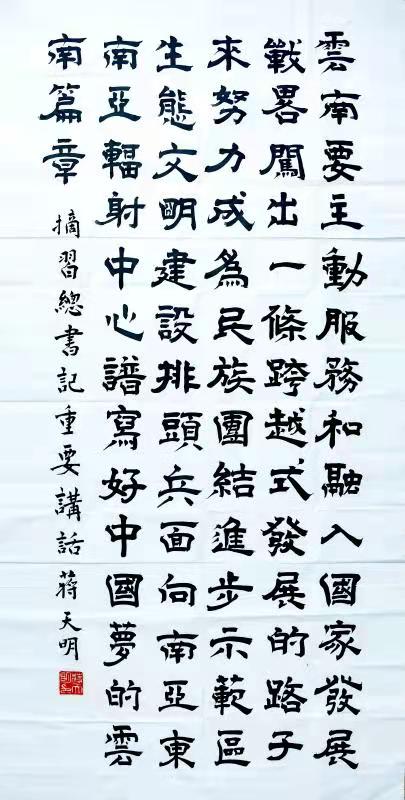 雲南要主動服務和融入國家發展
戰畧闖出一條跨越式發展的路子
來努力成為民族團結進步示範區
生態文明建設排頭兵面向南亞東
南亞輻射中心譜寫好中國夢的雲
南篇章
摘習總書記重要講話 蔣天明